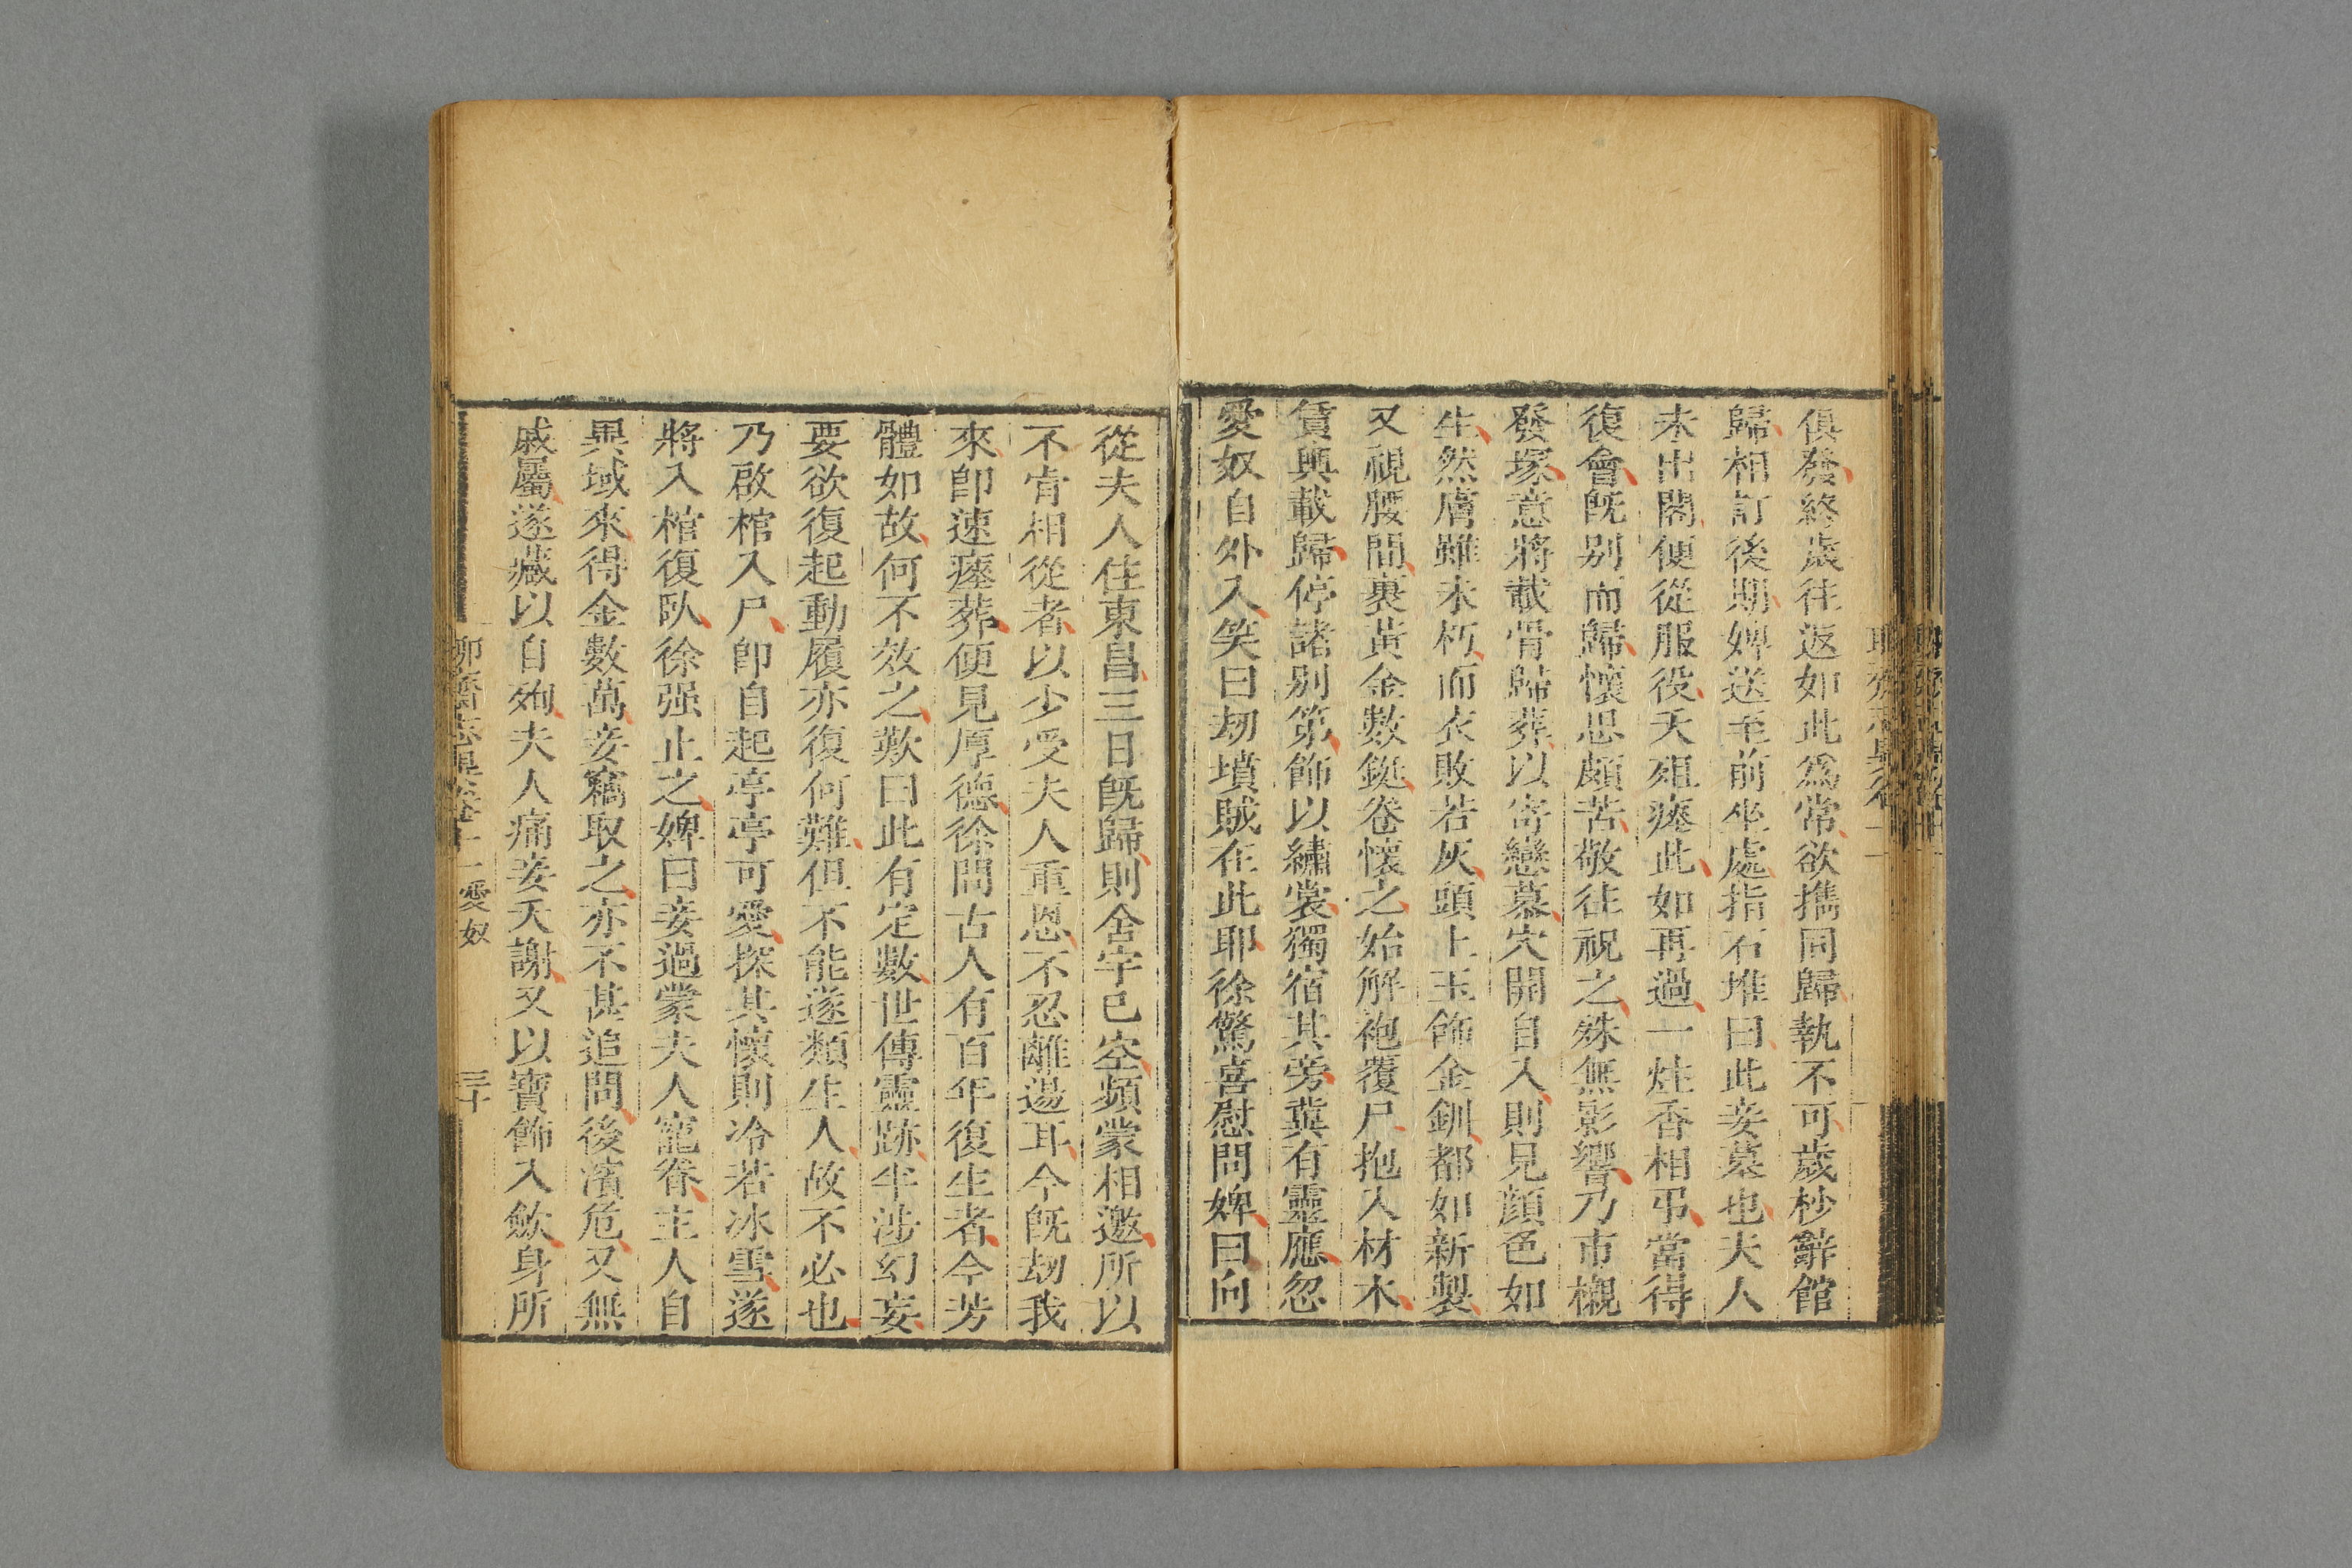 俱發終歲往返如此爲常欲攜同歸執不可歲杪辭館
歸相訂後期婢送至前坐處指石堆曰此妾墓也夫人
未出閣便從服役夭殂瘞此如再過一炷香相弔當得
復會旣别而歸懷思頗苦敬往祝之殊無影響乃市櫬
發塚意將載骨歸葬以寄戀慕穴開自入則見顔色如
生然膚雖未朽而衣敗若灰頭上玉飾金釧都如新製
又視腰間裹黃金數鋌卷懷之始解袍覆尸抱入材木
賃輿載歸停諸别第飾以繡裳獨宿其旁冀有靈應忽
愛奴自外入笑曰刼墳賊在此耶徐驚喜慰問婢曰向
從夫人往東昌三日旣歸則舍宇已空頻蒙相邀所以
不肯相從者以少受夫人重恩不忍離逷耳今旣刼我
來卽速瘞葬便見厚德徐問古人有百年復生者今芳
體如故何不效之歎曰此有定數世傳靈跡半涉幻妄
要欲復起動履亦復何難但不能遂類生人故不必也
乃啟棺入尸卽自起亭亭可愛探其懷則冷若冰雪遂
將入棺復臥徐强止之婢曰妾過蒙夫人寵眷主人自
異域來得金數萬妾竊取之亦不甚追問後濱危又無
戚屬遂藏以自殉夫人痛妾夭謝又以寶飾入歛身所
聊齋志異卷十二 愛奴 三十